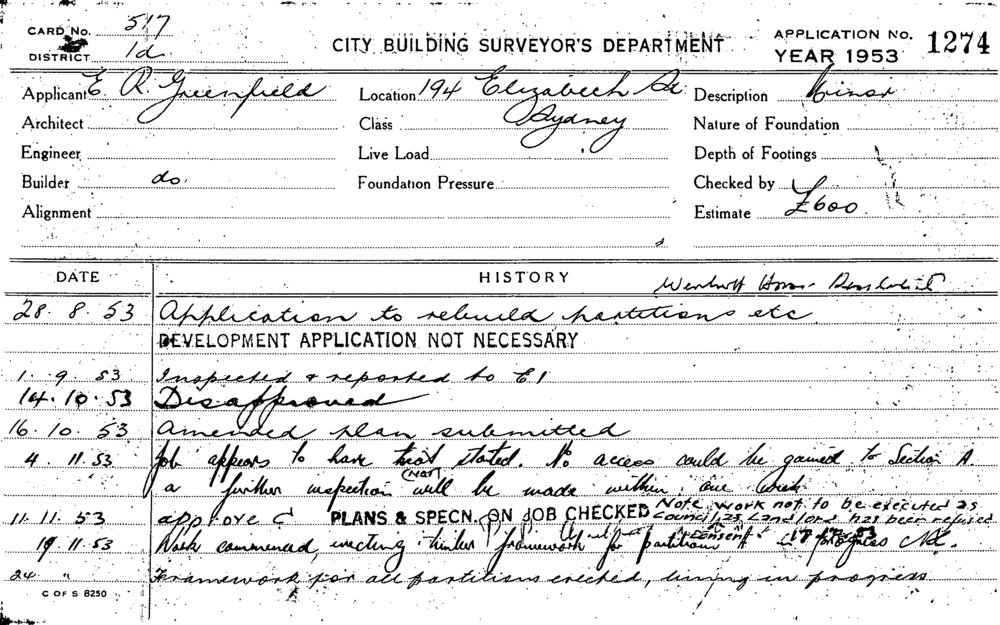 CARD No. 517
DISTRICT 1d
CITY BUILDING SURVEYOR'S DEPARTMENT
APPLICATION No. 1274
YEAR 1953
Applicant E R. Greenfield
Location 194 Elizabeth St
Sydney
Description Minor
Architect
Class
Nature of Foundation
Engineer
Live Load
Depth of Footings
Builder do.
Foundation Pressure
Checked by
Alignment
Estimate £600
DATE
HISTORY
28. 8. 53 Application to rebuild partitions etc
DEVELOPMENT APPLICATION NOT NECESSARY
1. 9. 53 Inspected & reported to E1
14. 10. 53 Disapproved
16. 10. 53 Amended plan submitted
4. 11. 53 Job appears to have not started. No access could be gained to Section A.
a further inspection will be made within one week
11. 11. 53 approved PLANS & SPECN. ON JOB CHECKED Note work not to be executed as
Council as landlord has been refused
consent
19. 11. 53 Work commenced, erecting timber framework for partitions in progress
24 " Framework for all partitions erected, lining in progress
C OF S 8250